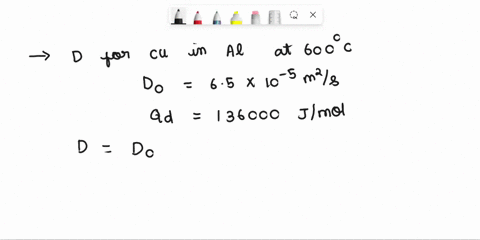 → D for cu in Al at 600°C
D₀ = 6.5 × 10⁻⁵ m²/s
Qd = 136000 J/mol
D = D₀